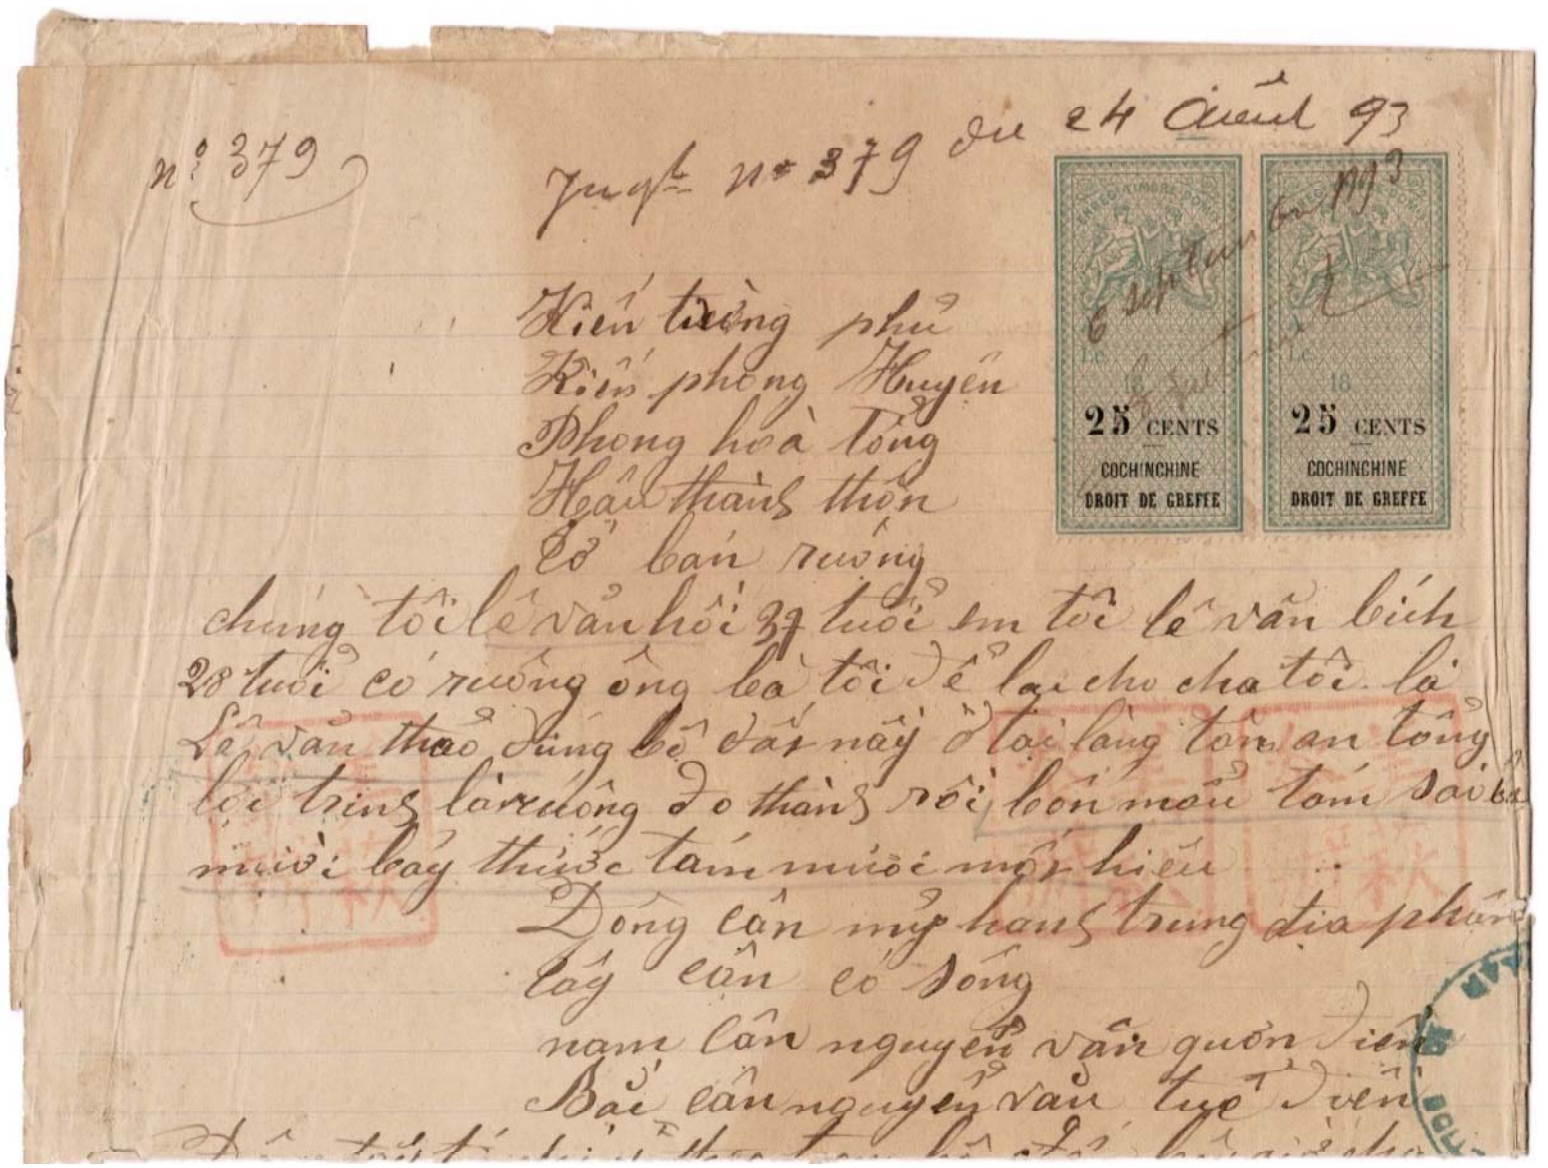 nº 379
Jugt nº 379 du 24 Août 93
6 septembre 1893
25 CENTS
COCHINCHINE
DROIT DE GREFFE
25 CENTS
COCHINCHINE
DROIT DE GREFFE
Kiến tường phủ
Kiến phong Huyện
Phong hoà tổng
Hậu thành thôn
Cớ bán ruộng
chúng tôi lê văn hôi 37 tuổi em tôi lê văn bích
28 tuổi có ruộng ông bà tôi để lại cho cha tôi là
Lê văn thảo đứng bộ đất nầy ở tại làng tân an tổng
lợi trinh là ruộng đo thành rồi bốn mẩu tám sào
mười bảy thước tám mươi một hiếu
Đông cận mỹ hanh trung địa phận
tây cận có sông
nam cận nguyễn văn quờn điền
Bắc cận nguyễn văn tuế điền